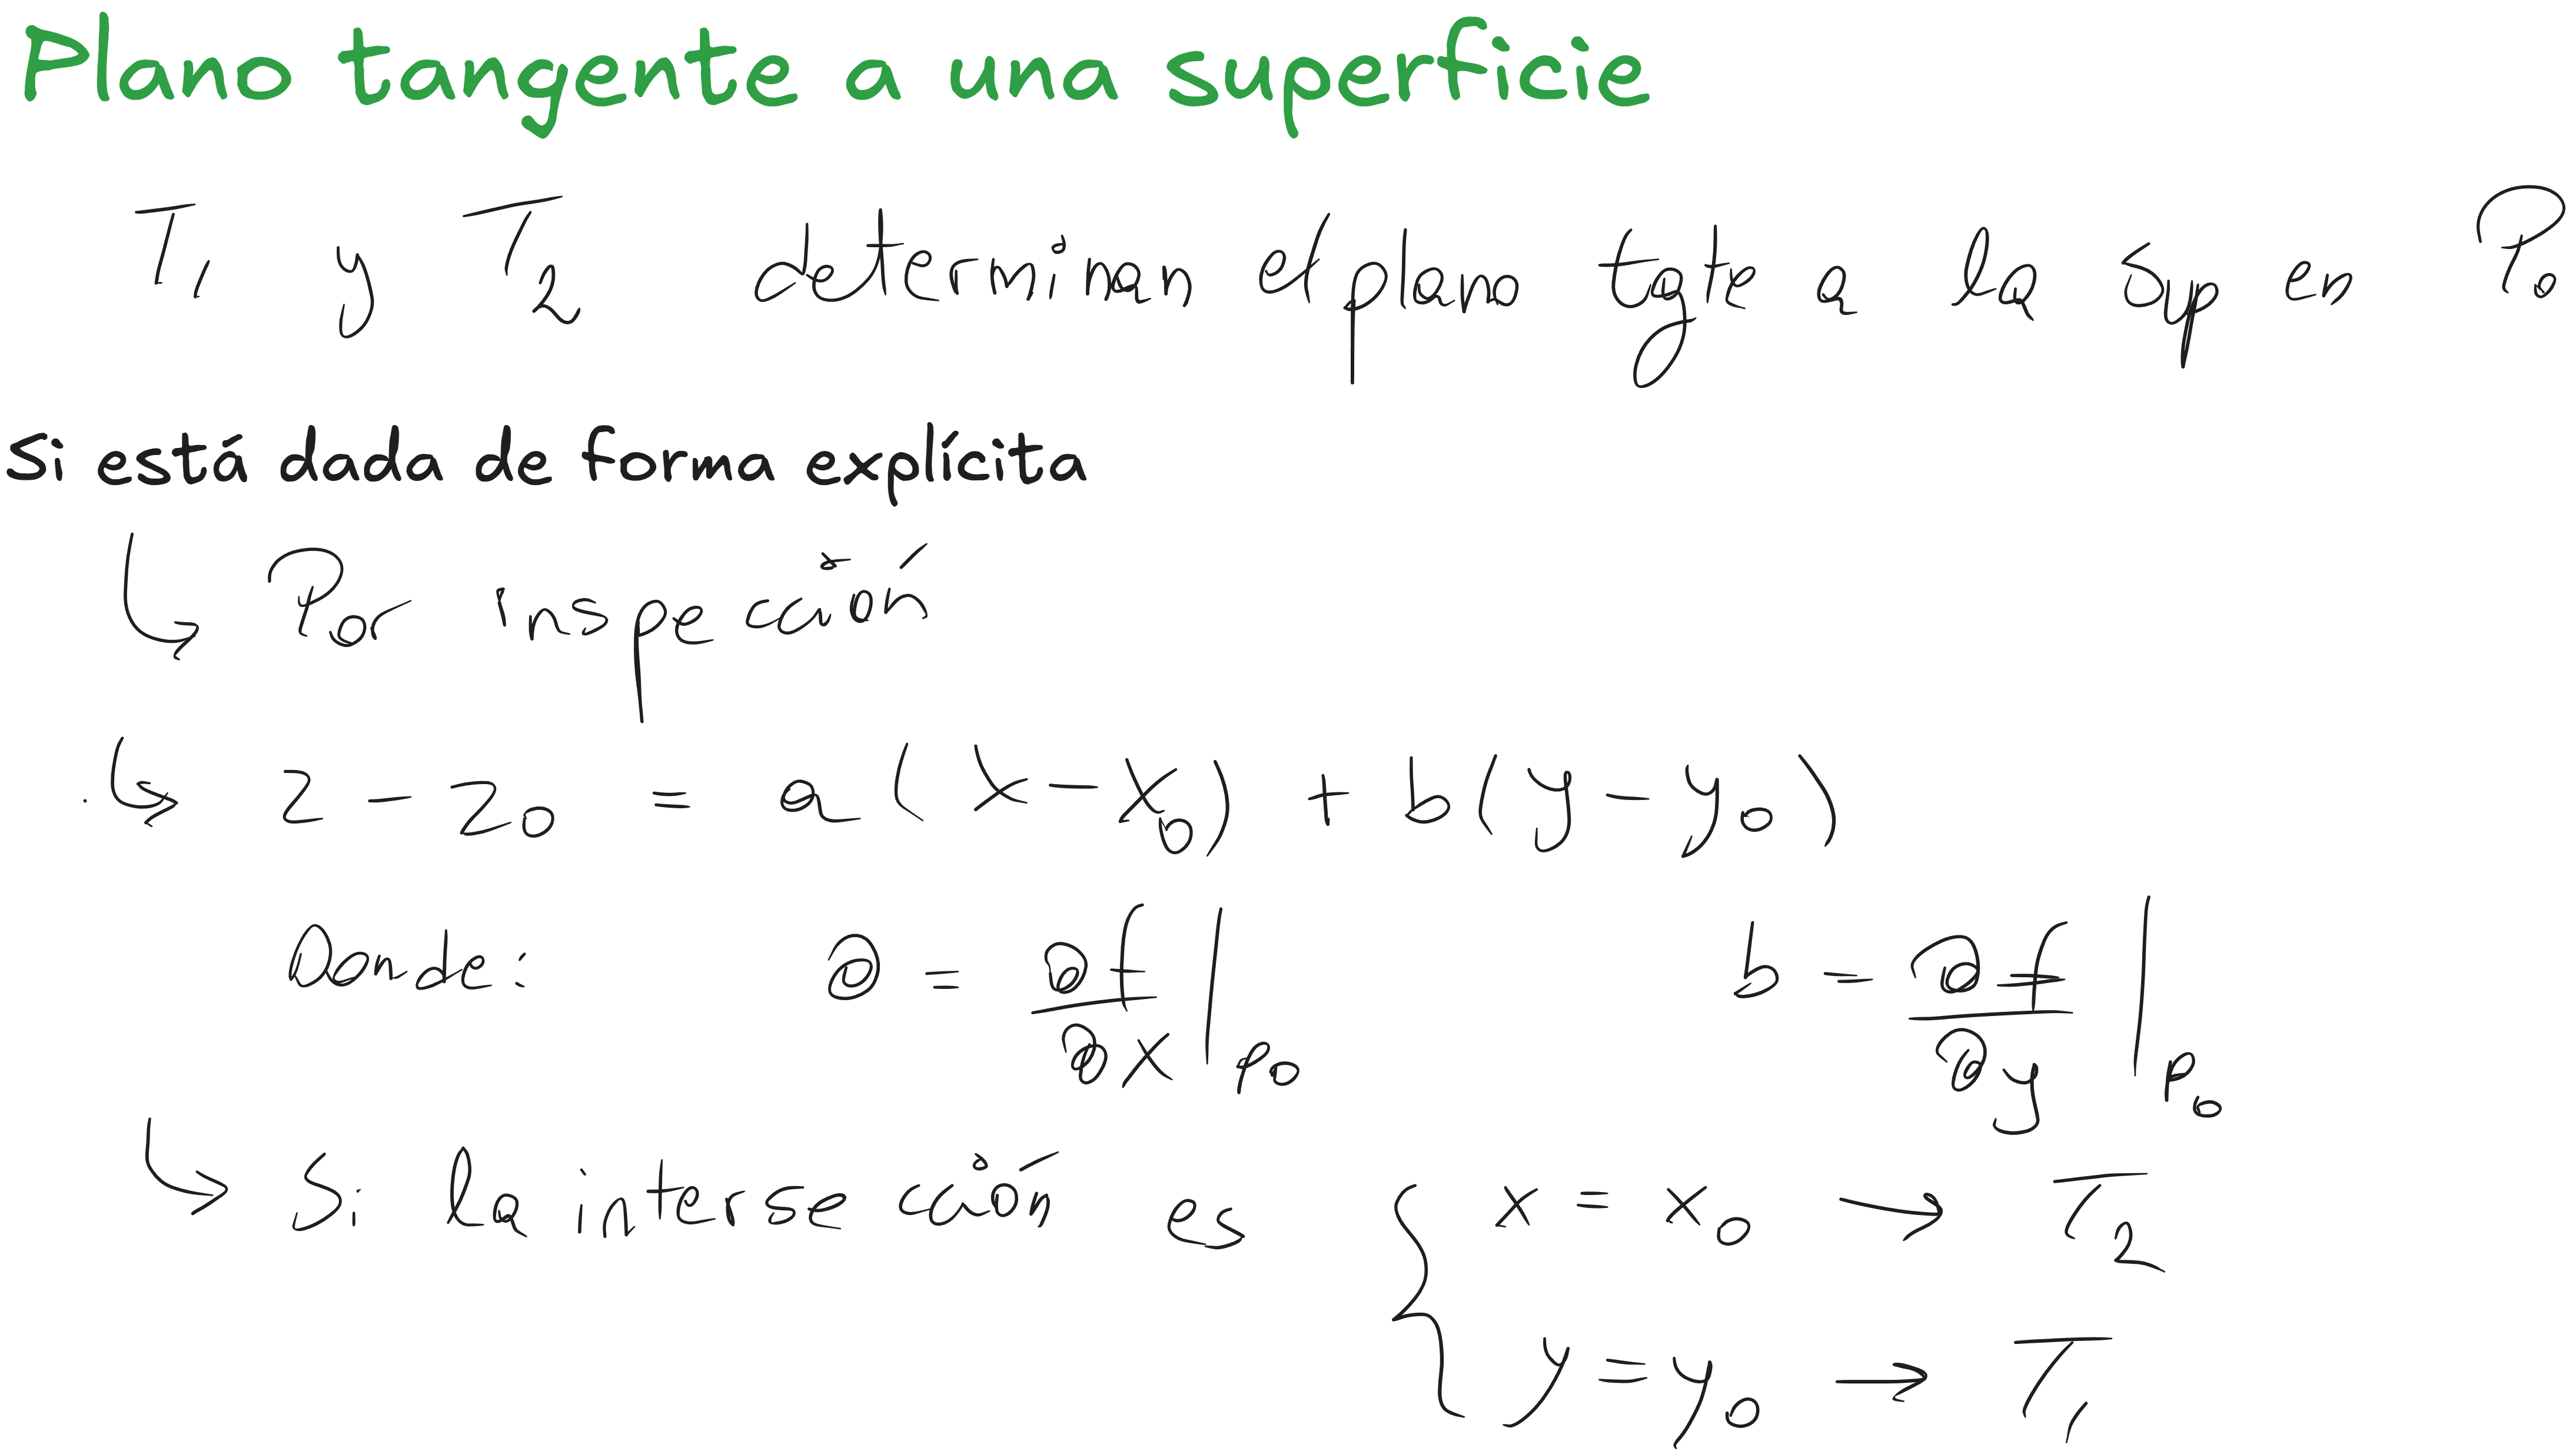 Plano tangente a una superficie
T₁ y T₂ determinan el plano tgte a la sup en P₀
Si está dada de forma explícita
↳ Por inspección
↳ z - z₀ = a(x - x₀) + b(y - y₀)
Donde: a = ∂f/∂x |P₀ b = ∂f/∂y |P₀
↳ Si la intersección es { x = x₀ → T₂
y = y₀ → T₁